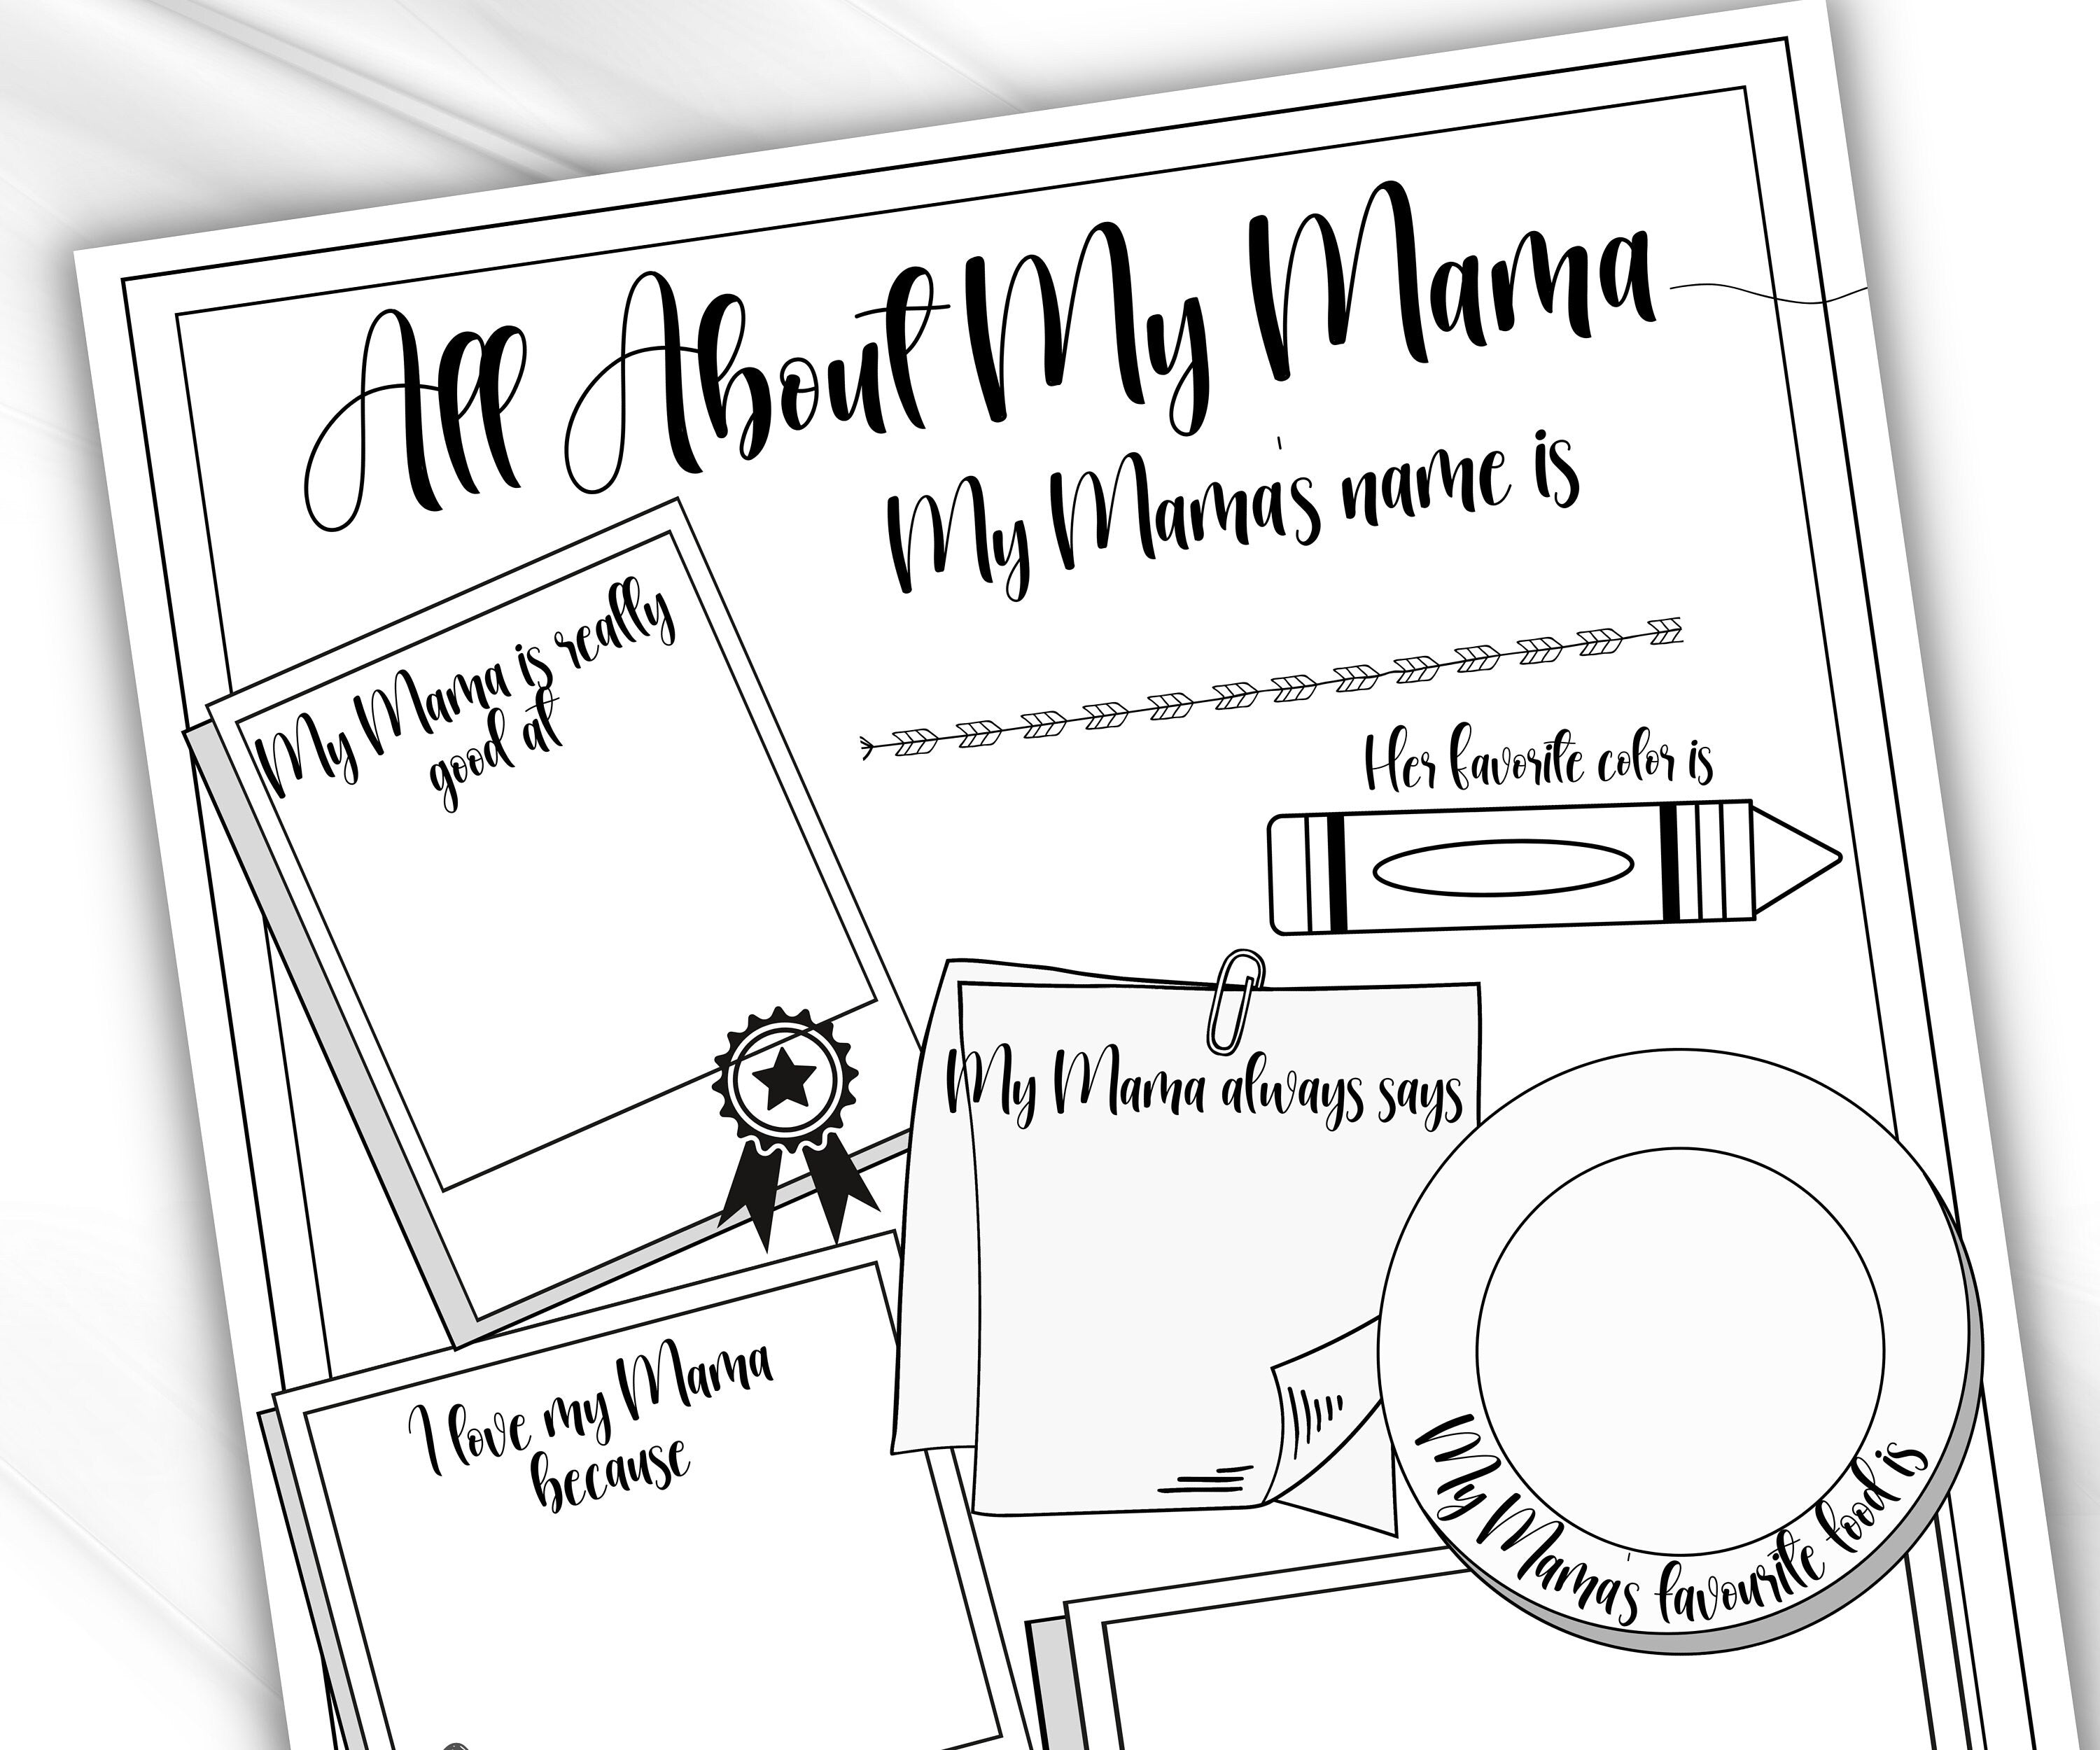 All About My Mama
My Mama's name is
My Mama is really
good at
Her favorite color is
My Mama always says
I love my Mama
because
My Mama's favourite food is